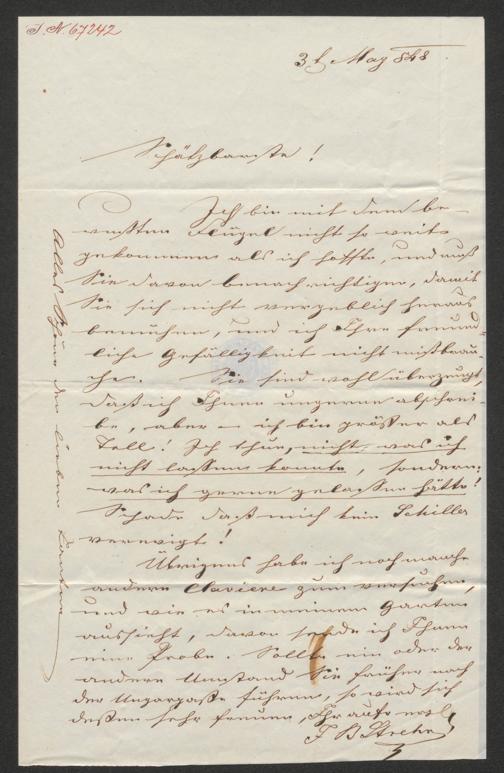 I. N. 67242
3t May 848
Schätzbarste!
Ich bin mit dem be-
wußten Flügel nicht so weit
gekommen als ich hoffte, und muß
Sie davon benachrichtigen, damit
Sie sich nicht vergeblich heraus
bemühen, und ich Ihre freund-
liche Gefälligkeit nicht mißbrau-
che. Sie sind wohl überzeugt,
daß ich Ihnen ungerne abschrei-
be, aber – ich bin größer als
Tell! Ich thue, nicht was ich
nicht lassen konnte, sondern:
was ich gerne gelassen hätte!
Schade daß mich kein Schiller
verewigt!
Übrigens habe ich noch manche
andere Claviere zum versuchen,
und wie es in meinem Garten
aussieht, davon sende ich Ihnen
eine Probe. Sollte ein oder der
andere Umstand Sie früher nach
der Ungargaße führen, so wird sich
deßen sehr freuen, Ihr aufr
J B Streicher
Alles Schöne der lieben Tante